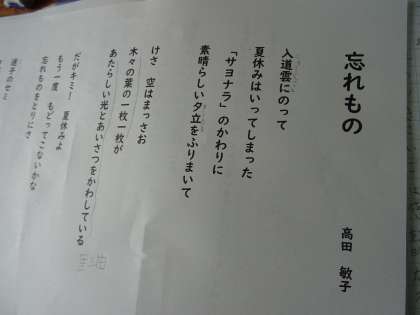 忘れもの
高田 敏子
入道雲にのって
夏休みはいってしまった
「サヨナラ」のかわりに
素晴らしい夕立をふりまいて
けさ 空はまっさお
木々の葉の一枚一枚が
あたらしい光とあいさつをかわしている
だがキミ! 夏休みよ
もう一度 もどってこないかな
忘れものをとりにさ
迷子のセミ